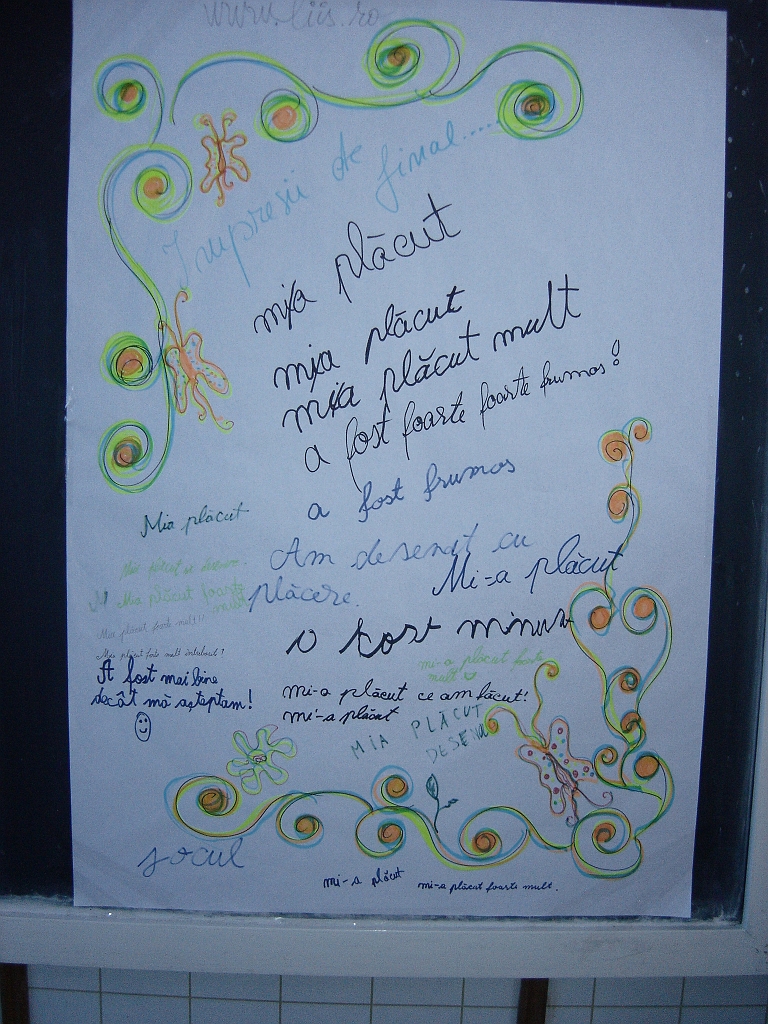 www.liis.ro
Impresii de final.....
mia plăcut
mia plăcut
mia plăcut mult
a fost foarte foarte frumos!
a fost frumos
Mia plăcut
Am desenat cu
plăcere.
Mi-a plăcut
Mia plăcut foarte
mult
Mia plăcut foarte mult!!
A fost mai bine
decât mă așteptam!
mi-a plăcut foarte
mult
mi-a plăcut ce am făcut!
mi-a plăcut
MIA PLĂCUT
DESENU
jocul
mi-a plăcut
mi-a plăcut foarte mult.